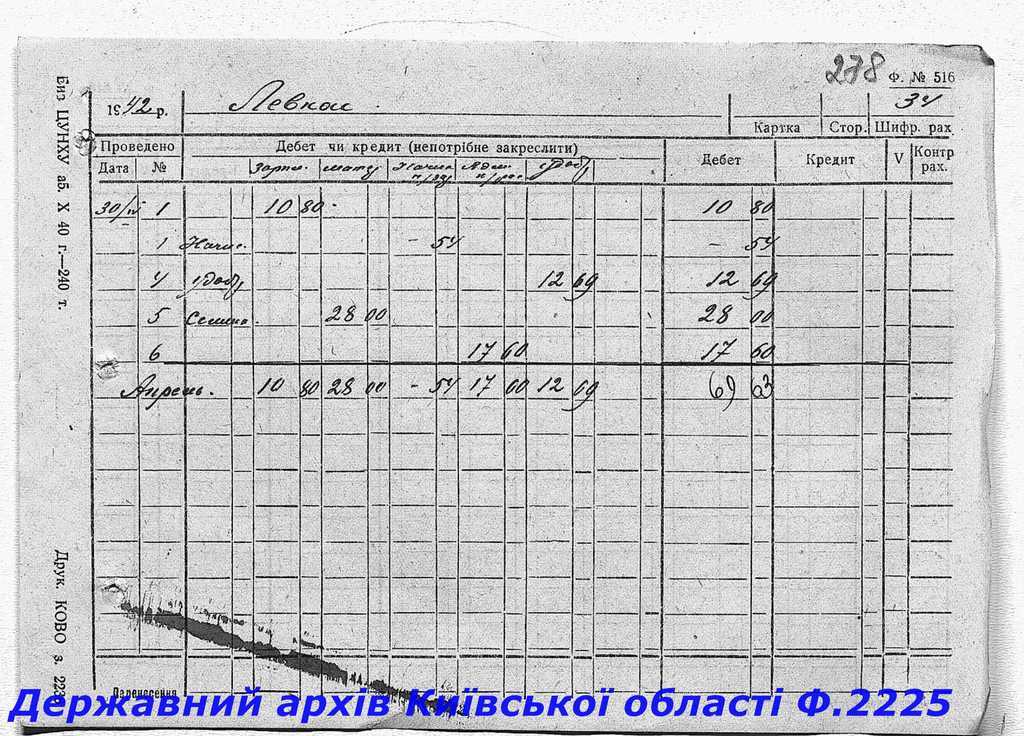 278 Ф. № 516
1942 р. Левкои. 34
Картка Стор. Шифр. рах
Проведено Дебет чи кредит (непотрібне закреслити) Дебет Кредит V Контр рах.
Дата №
30/IV 1 10 80 10 80
1 Начис. - 54 - 54
4 удобр 12 69 12 69
5 Семена. 28 00 28 00
6 17 60 17 60
Апрель. 10 80 28 00 - 54 17 60 12 69 69 63
Перенесення
Биз ЦУНХУ аб. X 40 г.—240 т.
Друк. КОВО з. 223
Державний архів Київської області Ф.2225